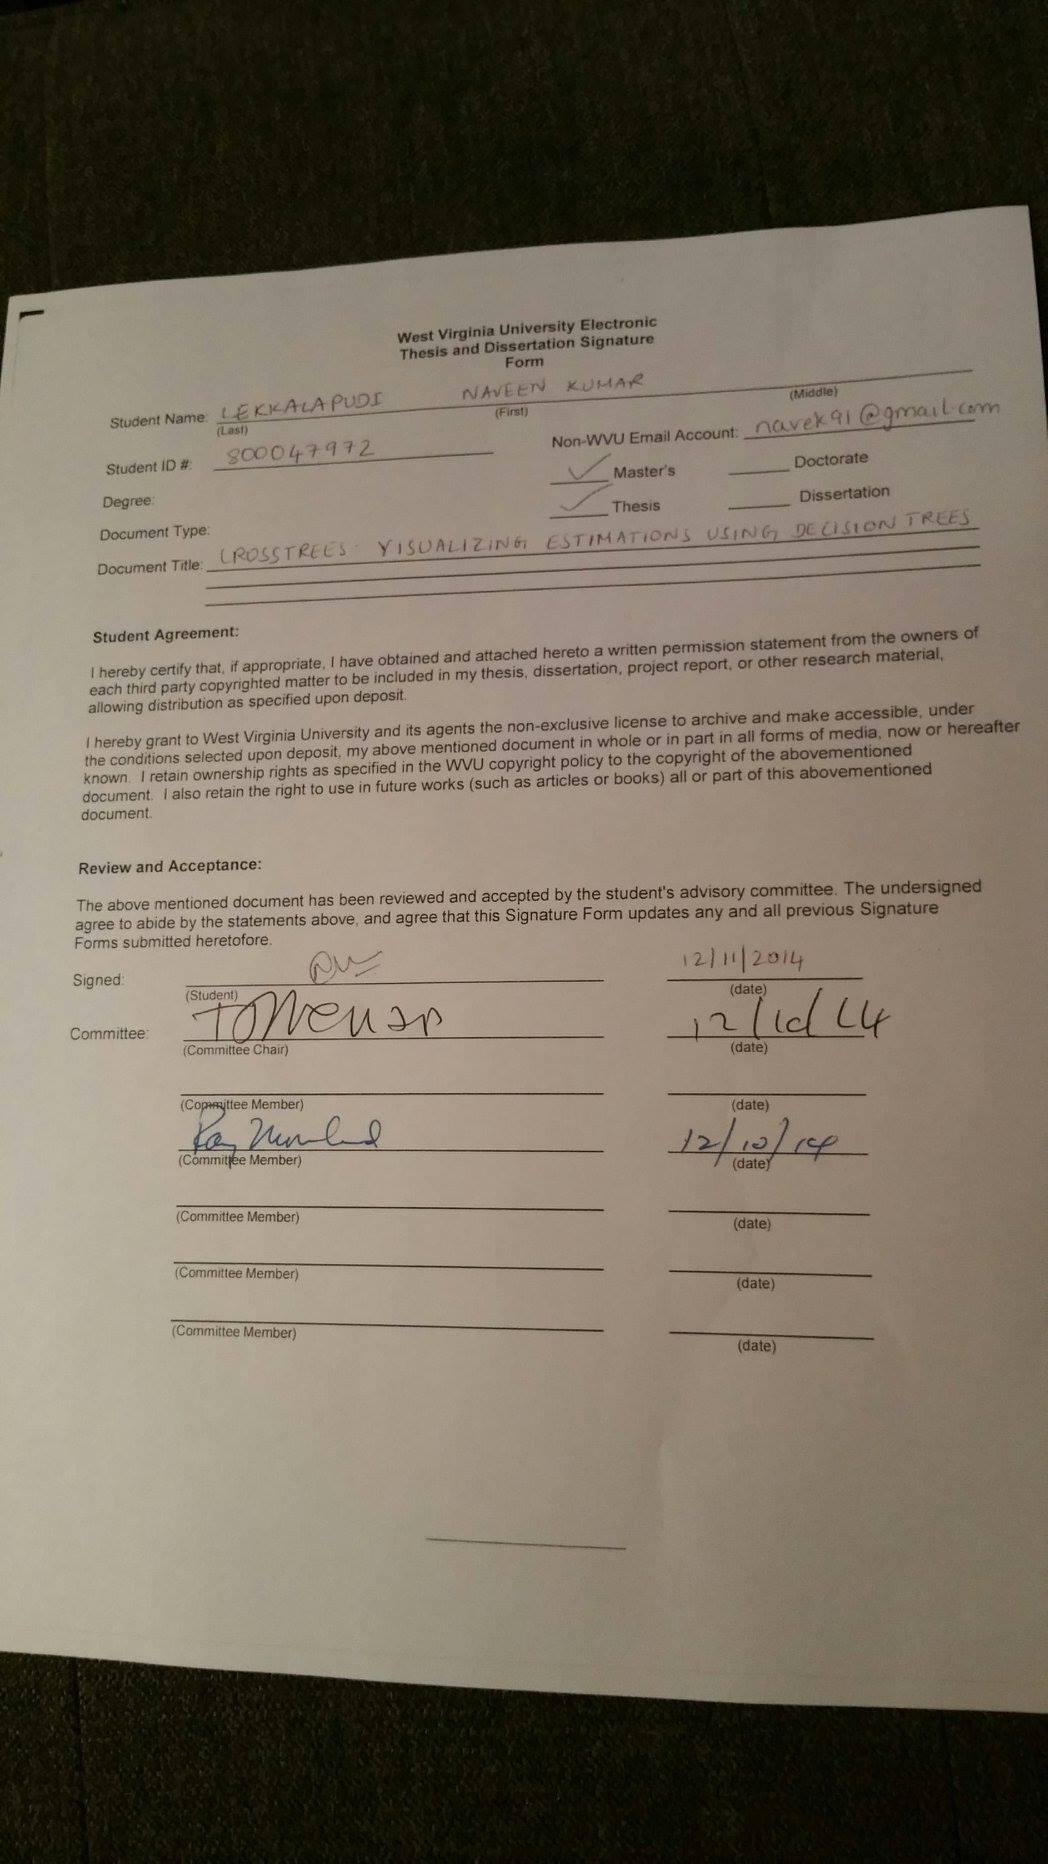 West Virginia University Electronic
Thesis and Dissertation Signature
Form
Student Name: LEKKALAPUDI NAVEEN KUMAR
(Last) (First) (Middle)
Student ID #: 800047972 Non-WVU Email Account: navek91@gmail.com
Degree: ✓ Master's Doctorate
Document Type: ✓ Thesis Dissertation
Document Title: CROSSTREES: VISUALIZING ESTIMATIONS USING DECISION TREES
Student Agreement:
I hereby certify that, if appropriate, I have obtained and attached hereto a written permission statement from the owners of
each third party copyrighted matter to be included in my thesis, dissertation, project report, or other research material,
allowing distribution as specified upon deposit.
I hereby grant to West Virginia University and its agents the non-exclusive license to archive and make accessible, under
the conditions selected upon deposit, my above mentioned document in whole or in part in all forms of media, now or hereafter
known. I retain ownership rights as specified in the WVU copyright policy to the copyright of the abovementioned
document. I also retain the right to use in future works (such as articles or books) all or part of this abovementioned
document.
Review and Acceptance:
The above mentioned document has been reviewed and accepted by the student's advisory committee. The undersigned
agree to abide by the statements above, and agree that this Signature Form updates any and all previous Signature
Forms submitted heretofore.
Signed: 12/11/2014
(Student) (date)
Committee: 12/10/14
(Committee Chair) (date)
(Committee Member) (date)
12/10/14
(Committee Member) (date)
(Committee Member) (date)
(Committee Member) (date)
(Committee Member) (date)